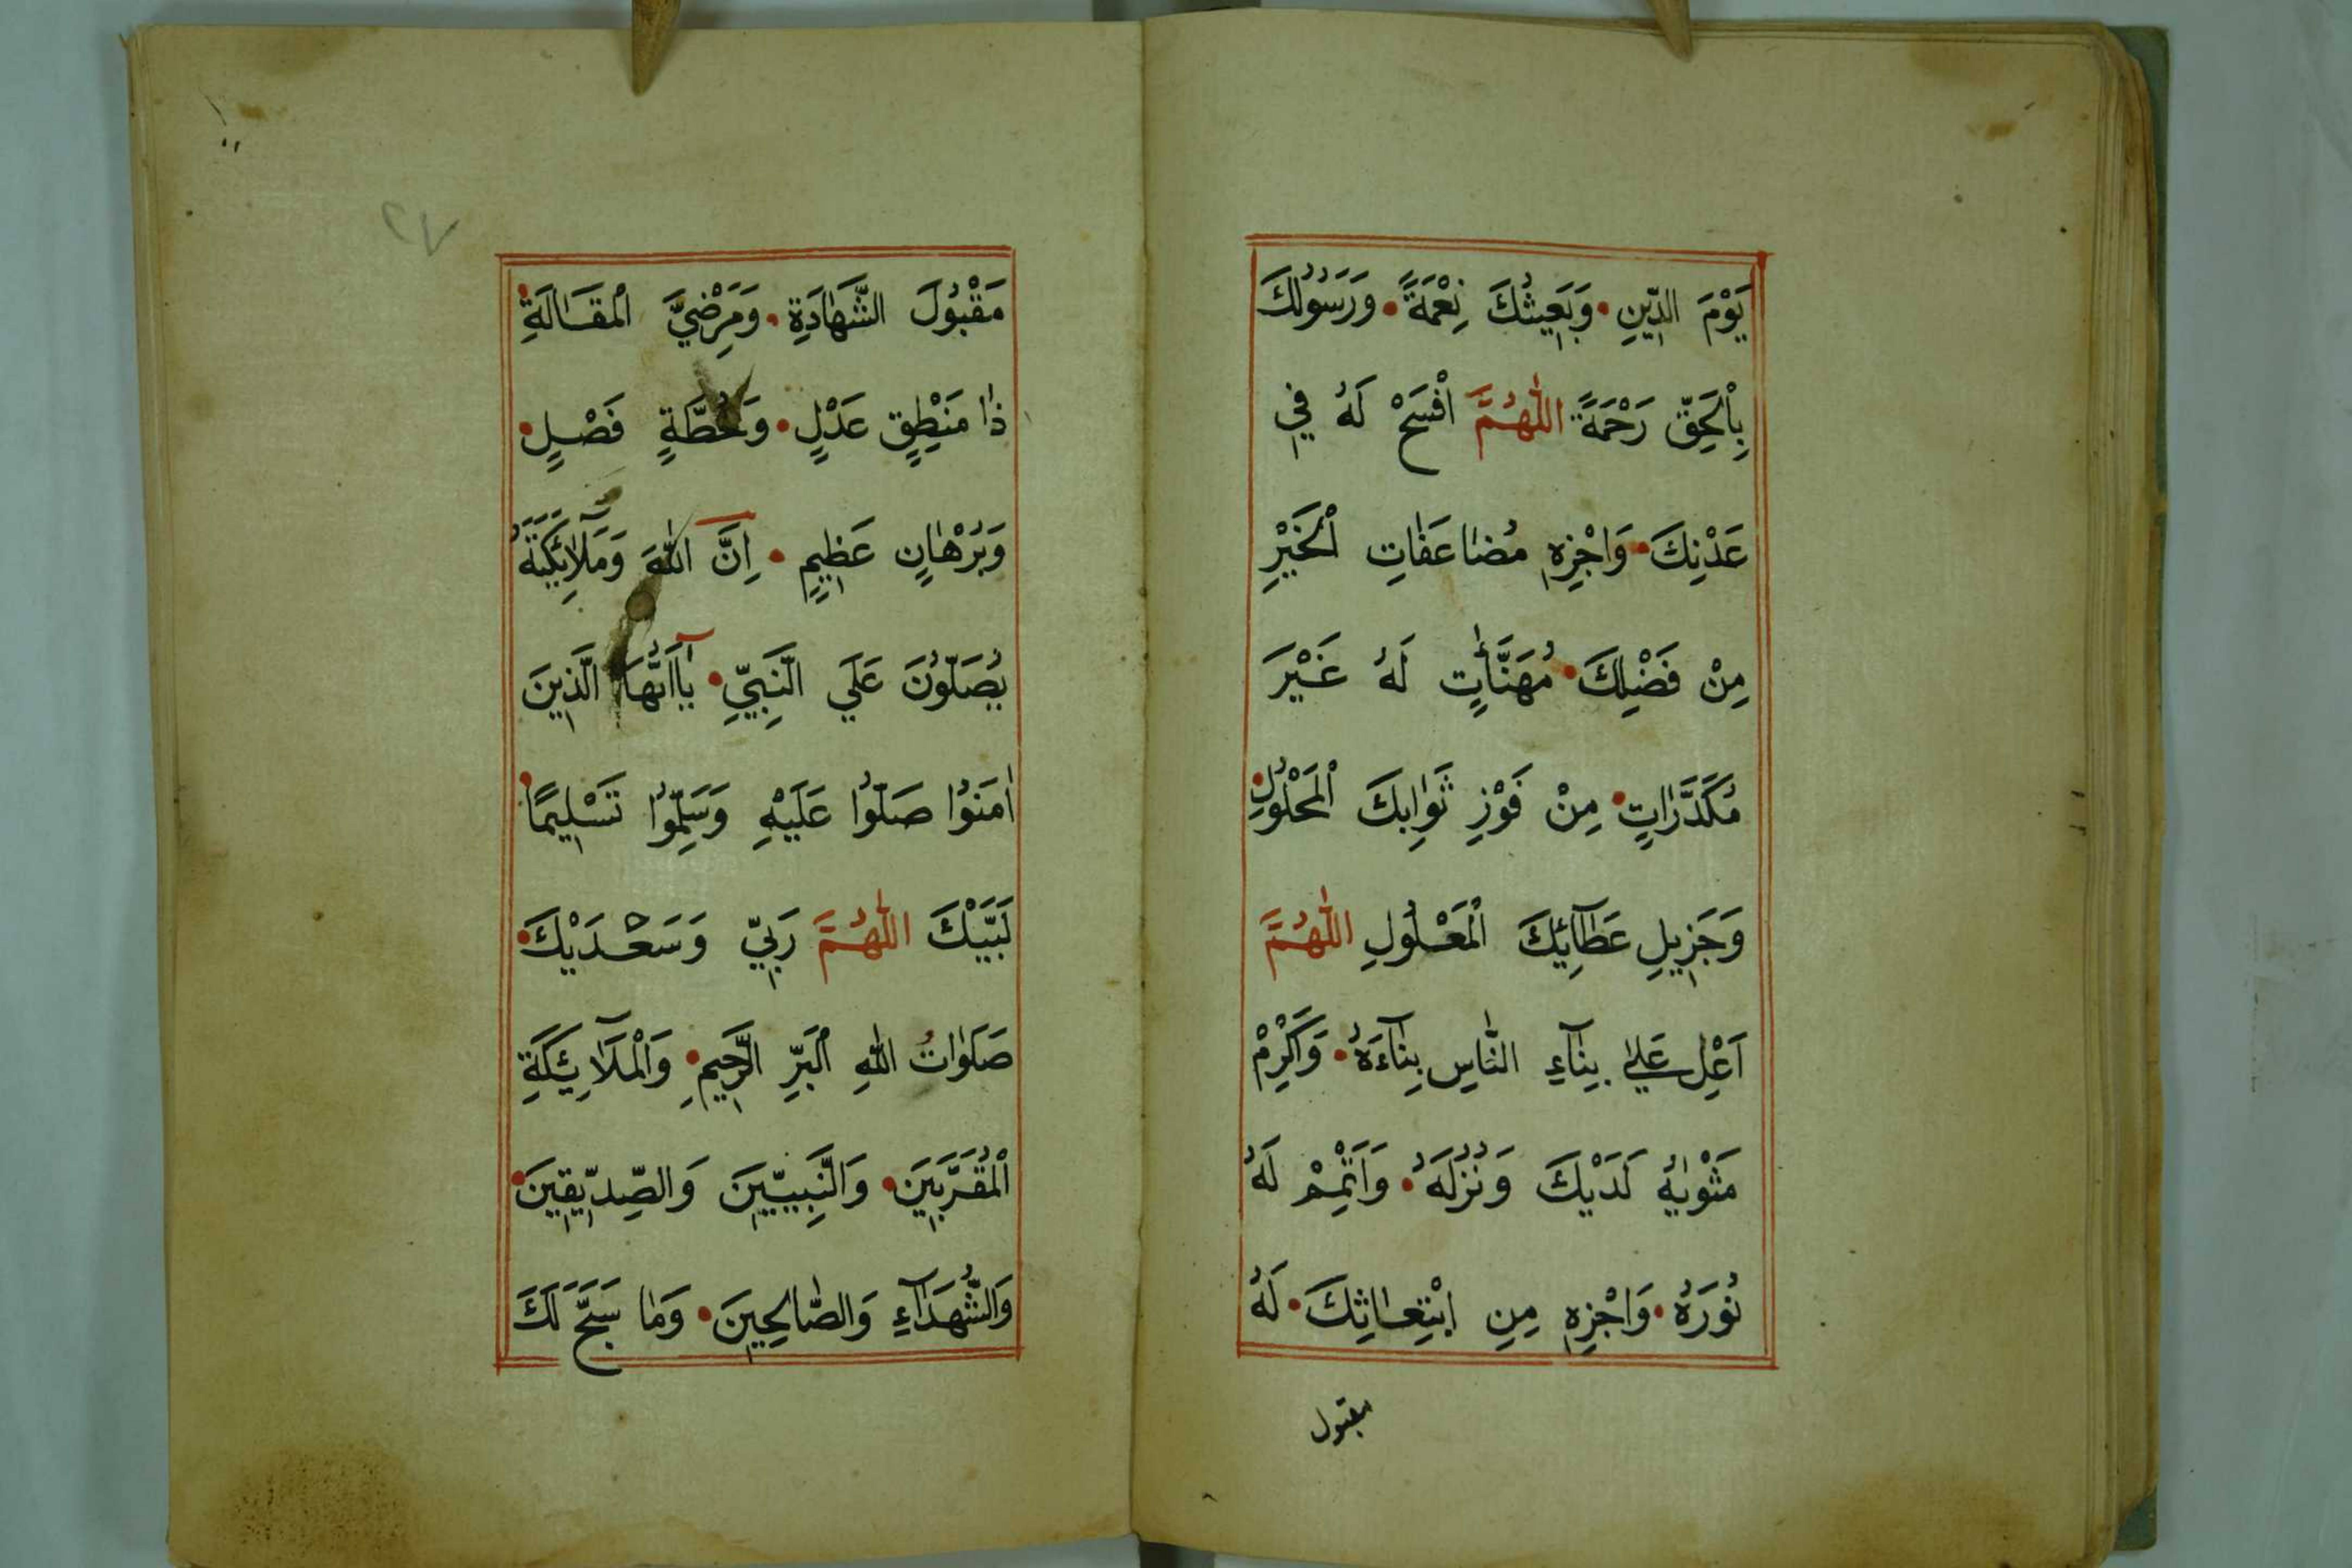 يَوْمَ الدِّينِ • وَبَعِيثُكَ نِعْمَةً • وَرَسُولُكَ
بِالْحَقِّ رَحْمَةً اَللّٰهُمَّ افْسَحْ لَهُ فِي
عَدْنِكَ • وَاجْزِهِ مُضَاعَفَاتِ الْخَيْرِ
مِنْ فَضْلِكَ • مُهَنَّأٰتٍ لَهُ غَيْرَ
مُكَدَّرَاتٍ • مِنْ فَوْزِ ثَوَابِكَ الْمَحْلُولِ •
وَجَزِيلِ عَطَآئِكَ الْمَعْلُولِ اَللّٰهُمَّ
اَعْلِ عَلٰى بِنَآءِ النَّاسِ بِنَآءَهُ • وَاَكْرِمْ
مَثْوٰيهُ لَدَيْكَ وَنُزُلَهُ • وَاَتْمِمْ لَهُ
نُورَهُ • وَاجْزِهِ مِنِ ابْتِعَاثِكَ • لَهُ
مقبول
٢٧
مَقْبُولَ الشَّهَادَةِ • وَمَرْضِيَّ الْمَقَالَةِ •
ذَا مَنْطِقٍ عَدْلٍ • وَخُطَّةٍ فَصْلٍ •
وَبُرْهَانٍ عَظِيمٍ • اِنَّ اللّٰهَ وَمَلٰٓائِكَتَهُ
يُصَلُّونَ عَلَي النَّبِيِّ • يَآاَيُّهَا الَّذِينَ
اٰمَنُوا صَلُّوا عَلَيْهِ وَسَلِّمُوا تَسْلِيمًا •
لَبَّيْكَ اَللّٰهُمَّ رَبِّي وَسَعْدَيْكَ •
صَلَوَاتُ اللّٰهِ الْبَرِّ الرَّحِيمِ • وَالْمَلَآئِكَةِ
الْمُقَرَّبِينَ • وَالنَّبِيِّينَ وَالصِّدِّيقِينَ •
وَالشُّهَدَآءِ وَالصَّالِحِينَ • وَمَا سَبَّحَ لَكَ